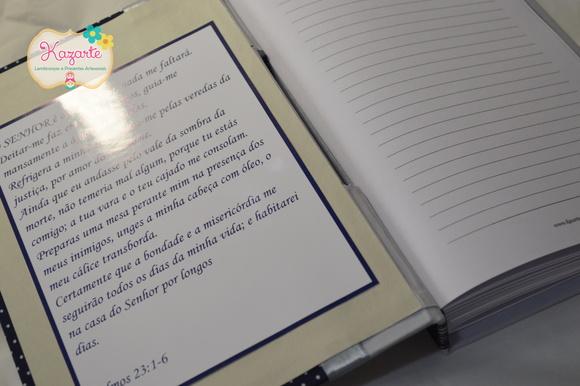 Kazarte
Lembranças e Presentes Artesanais
SENHOR é nada me faltará.
Deitar-me faz guia-me
mansamente a
Refrigera a minha -me pelas veredas da
justiça, por amor do
Ainda que eu andasse pelo vale da sombra da
morte, não temeria mal algum, porque tu estás
comigo; a tua vara e o teu cajado me consolam.
Preparas uma mesa perante mim na presença dos
meus inimigos, unges a minha cabeça com óleo, o
meu cálice transborda.
Certamente que a bondade e a misericórdia me
seguirão todos os dias da minha vida; e habitarei
na casa do Senhor por longos
dias.
lmos 23:1-6